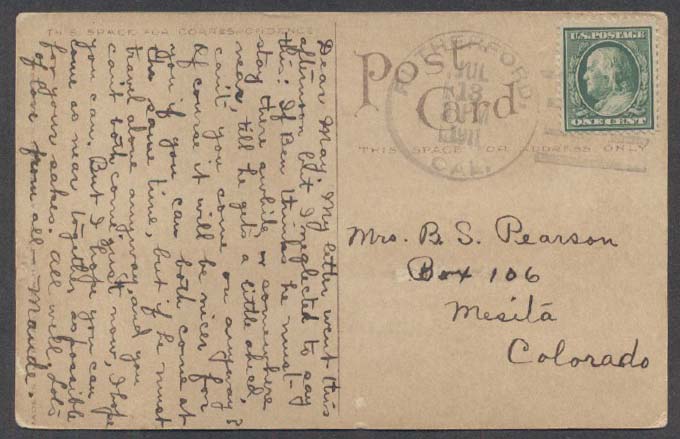 THIS SPACE FOR CORRESPONDENCE
Dear May: My letter went this
afternoon but I neglected to say
this: If Ben thinks he must
stay there awhile, or somewhere
near, till he gets a little ahead,
can't you come on anyway?
Of course it will be nicer for
you if you can both come at
the same time, but if he must
travel alone anyway, and you
can't both come just now, I hope
you can. But I hope you can
come as near together as possible
for your sakes. All well, Lots
of love from all — Maude.
Post Card
THIS SPACE FOR ADDRESS ONLY
RUTHERFORD,
JUL
13
PM
1911
CAL.
U.S. POSTAGE
ONE CENT
Mrs. B. S. Pearson
Box 106
Mesita
Colorado